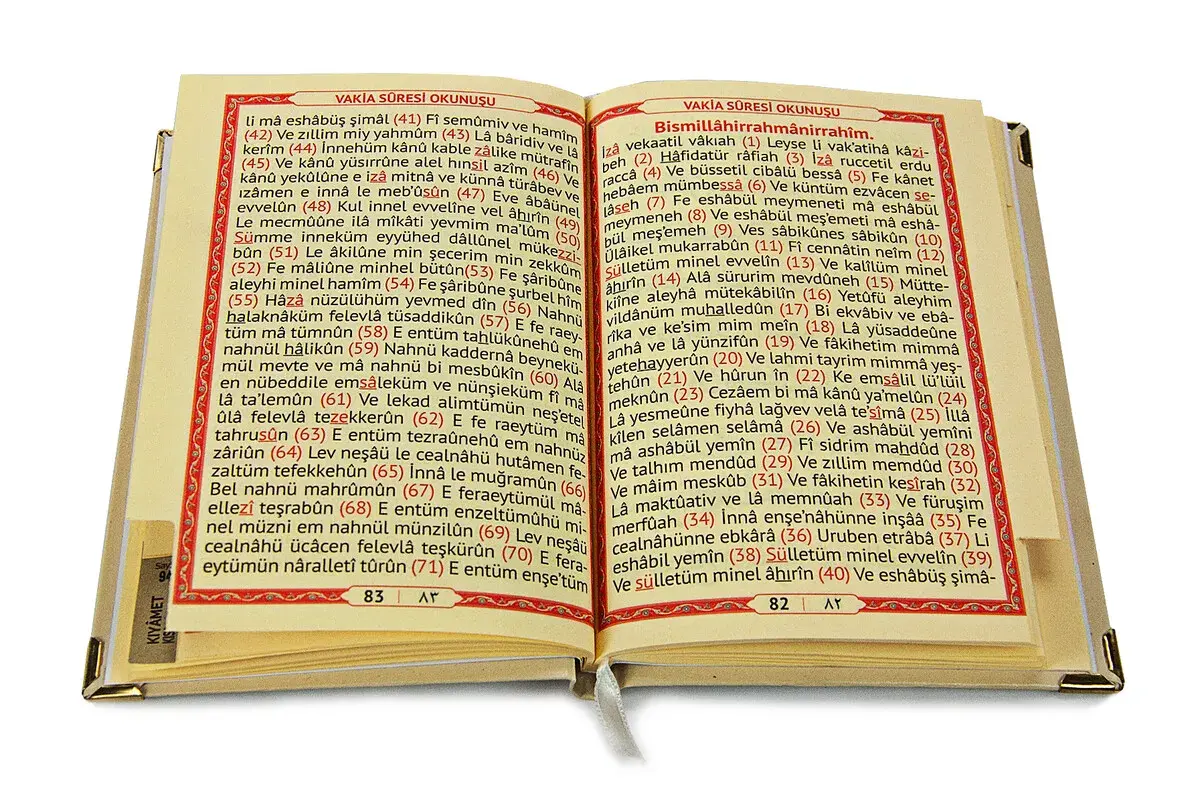 VAKİA SÛRESİ OKUNUŞU
Bismillâhirrahmânirrahîm.
İzâ vekaatil vâkıah (1) Leyse li vak'atihâ kâzi-
beh (2) Hâfidatür râfiah (3) İzâ ruccetil erdu
raccâ (4) Ve büssetil cibâlü bessâ (5) Fe kânet
hebâem mümbessâ (6) Ve küntüm ezvâcen se-
lâseh (7) Fe eshâbül meymeneti mâ eshâbül
meymeneh (8) Ve eshâbül meş'emeti mâ eshâ-
bül meş'emeh (9) Ves sâbikûnes sâbikûn (10)
Ülâikel mukarrabûn (11) Fî cennâtin neîm (12)
Sülletüm minel evvelîn (13) Ve kalîlüm minel
âhırîn (14) Alâ sürurim mevdûneh (15) Mütte-
kiîne aleyhâ mütekâbilîn (16) Yetûfü aleyhim
vildânüm muhalledûn (17) Bi ekvâbiv ve ebâ-
rîka ve ke'sim mim meîn (18) Lâ yüsaddeûne
anhâ ve lâ yünzifûn (19) Ve fâkihetim mimmâ
yetehayyerûn (20) Ve lahmi tayrim mimmâ yeş-
tehûn (21) Ve hûrun în (22) Ke emsâlil lü'lüil
meknûn (23) Cezâem bi mâ kânû ya'melûn (24)
Lâ yesmeûne fiyhâ lağvev velâ te'sîmâ (25) İllâ
kîlen selâmen selâmâ (26) Ve ashâbül yemîni
mâ ashâbül yemîn (27) Fî sidrim mahdûd (28)
Ve talhım mendûd (29) Ve zıllim memdûd (30)
Ve mâim meskûb (31) Ve fâkihetin kesîrah (32)
Lâ maktûativ ve lâ memnûah (33) Ve füruşim
merfûah (34) İnnâ enşe'nâhünne inşââ (35) Fe
cealnâhünne ebkârâ (36) Uruben etrâbâ (37) Li
eshâbil yemîn (38) Sülletüm minel evvelîn (39)
Ve sülletüm minel âhırîn (40) Ve eshâbüş şimâ-
82 | ٨٢
VAKİA SÛRESİ OKUNUŞU
li mâ eshâbüş şimâl (41) Fî semûmiv ve hamîm
(42) Ve zıllim miy yahmûm (43) Lâ bâridiv ve lâ
kerîm (44) İnnehüm kânû kable zâlike mütrafîn
(45) Ve kânû yüsırrûne alel hınsil azîm (46) Ve
kânû yekûlûne e izâ mitnâ ve künnâ türâbev ve
ızâmen e innâ le meb'ûsûn (47) Eve âbâünel
evvelûn (48) Kul innel evvelîne vel âhırîn (49)
Le mecmûûne ilâ mîkâti yevmim ma'lûm (50)
Sümme inneküm eyyühed dâllûnel mükezzi-
bûn (51) Le âkilûne min şecerim min zekkûm
(52) Fe mâliûne minhel bütûn(53) Fe şâribûne
aleyhi minel hamîm (54) Fe şâribûne şurbel hîm
(55) Hâzâ nüzülühüm yevmed dîn (56) Nahnü
halaknâküm felevlâ tüsaddikûn (57) E fe raey-
tüm mâ tümnûn (58) E entüm tahlükûnehû em
nahnül hâlikûn (59) Nahnü kaddernâ beynekü-
mül mevte ve mâ nahnü bi mesbûkîn (60) Alâ
en nübeddile emsâleküm ve nünşieküm fî mâ
lâ ta'lemûn (61) Ve lekad alimtümün neş'etel
ûlâ felevlâ tezekkerûn (62) E fe raeytüm mâ
tahrusûn (63) E entüm tezraûnehû em nahnüz
zâriûn (64) Lev neşâü le cealnâhü hutâmen fe-
zaltüm tefekkehûn (65) İnnâ le muğramûn (66)
Bel nahnü mahrûmûn (67) E feraeytümül mâ-
ellezî teşrabûn (68) E entüm enzeltümûhü mi-
nel müzni em nahnül münzilûn (69) Lev neşâü
cealnâhü ücâcen felevlâ teşkürûn (70) E fera-
eytümün nâralletî tûrûn (71) E entüm enşe'tüm
83 | ٨٣
KIYÂMET